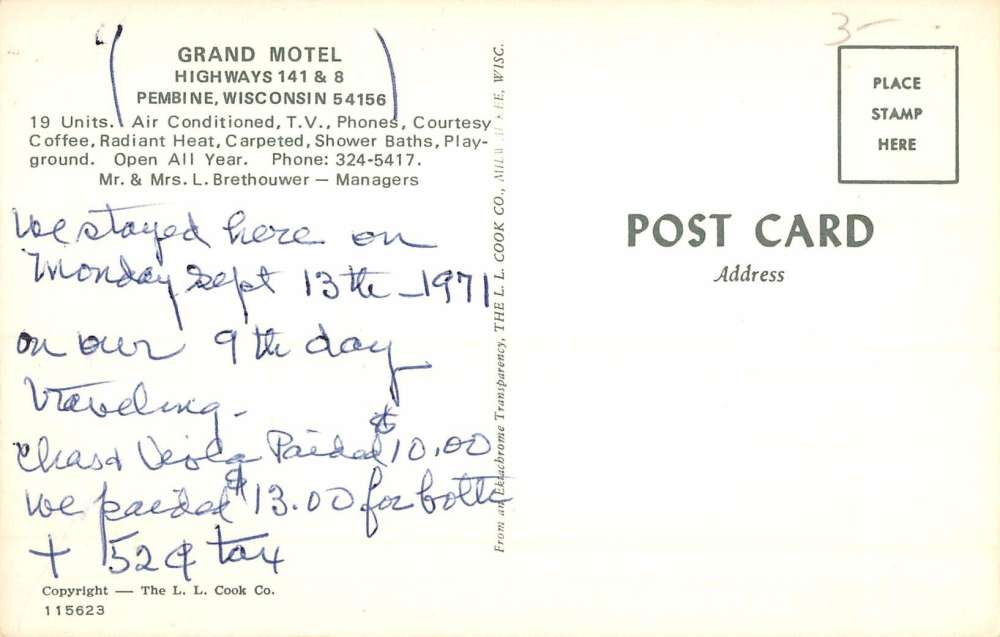 3-
GRAND MOTEL
HIGHWAYS 141 & 8
PEMBINE, WISCONSIN 54156
19 Units. Air Conditioned, T.V., Phones, Courtesy
Coffee, Radiant Heat, Carpeted, Shower Baths, Play-
ground. Open All Year. Phone: 324-5417.
Mr. & Mrs. L. Brethouwer — Managers
We stayed here on
Monday Sept 13th - 1971
on our 9th day
traveling -
Chas & Viola Paided $10.00
We paided $13.00 for both
+ 52¢ tax
Copyright — The L. L. Cook Co.
115623
From an Ektachrome Transparency, THE L. L. COOK CO., MILWAUKEE, WISC.
PLACE
STAMP
HERE
POST CARD
Address